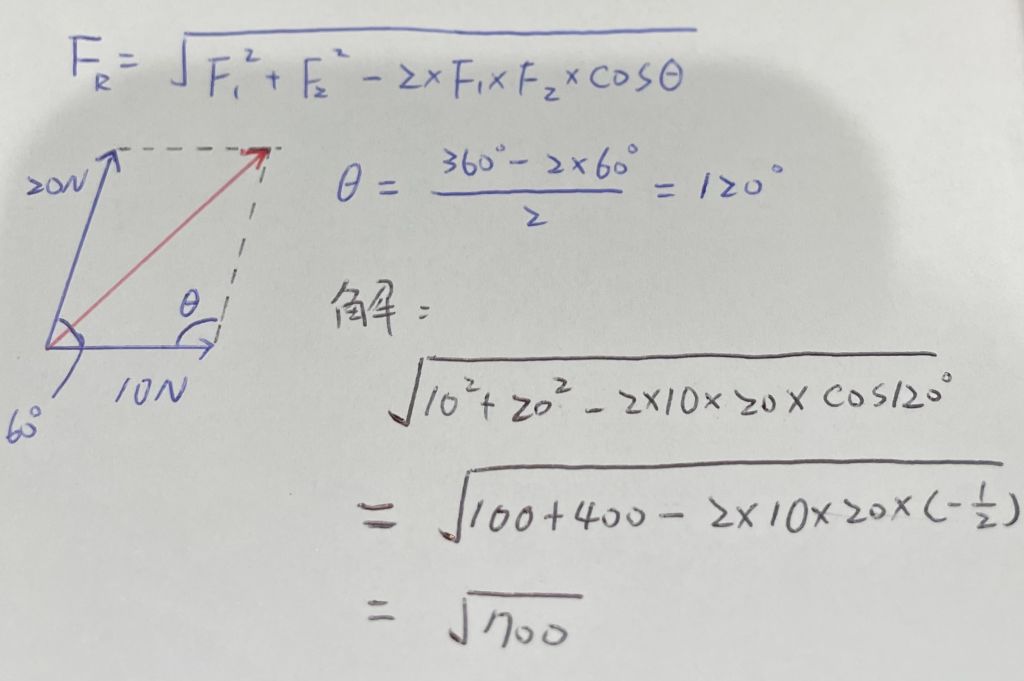 F_R = √(F₁² + F₂² - 2×F₁×F₂×cosθ)
20N
θ = (360° - 2×60°)/2 = 120°
θ
10N
60°
解:
√(10² + 20² - 2×10×20×cos120°)
= √(100+400 - 2×10×20×(-1/2))
= √700